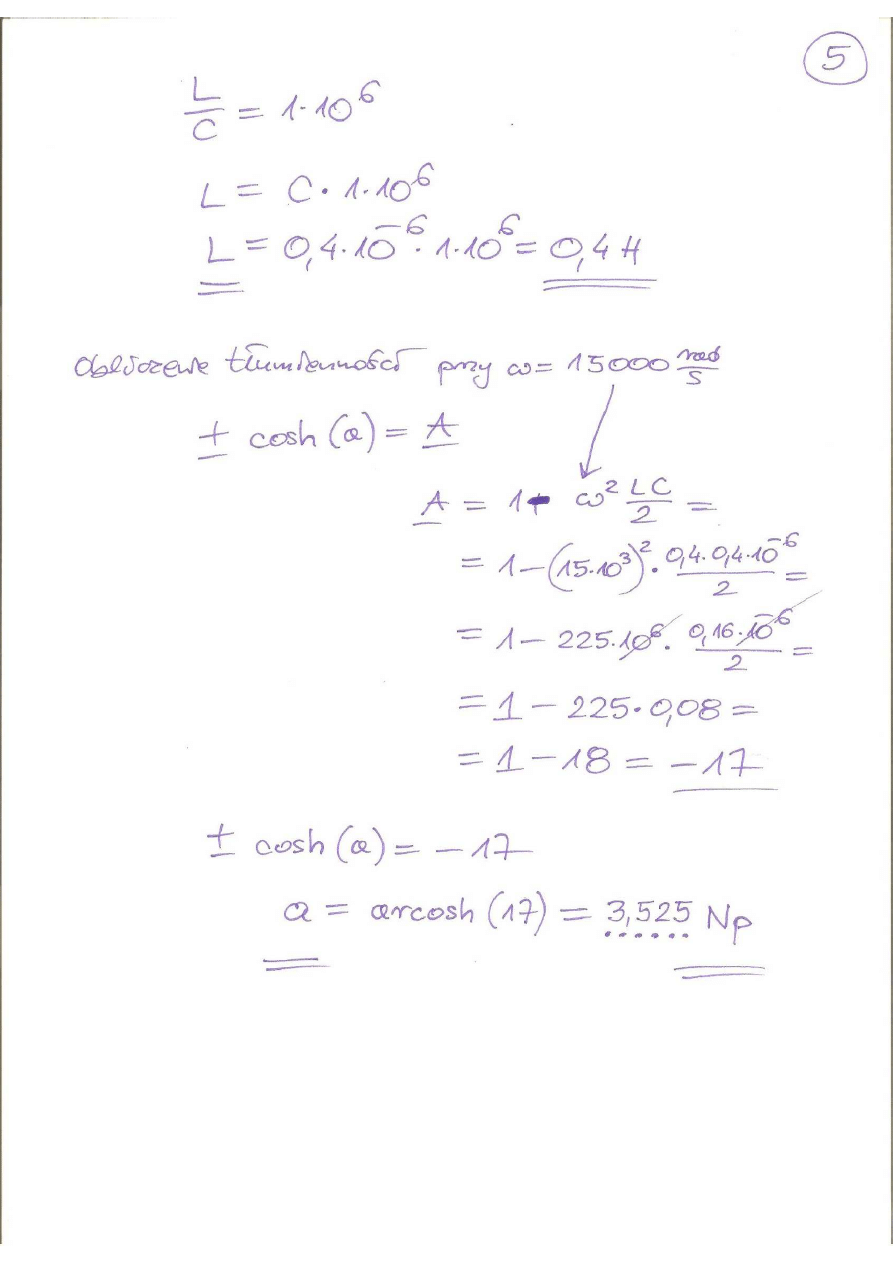 5
L/C = 1·10^6
L = C · 1·10^6
L = 0,4·10^-6 · 1·10^6 = 0,4 H
Obliczenie tłumienności przy ω = 15000 rad/s
± cosh (a) = A
A = 1 - ω² LC/2 =
= 1 - (15·10³)² · 0,4·0,4·10^-6/2 =
= 1 - 225·10^6 · 0,16·10^-6/2 =
= 1 - 225·0,08 =
= 1 - 18 = -17
± cosh (a) = -17
a = arcosh (17) = 3,525 Np